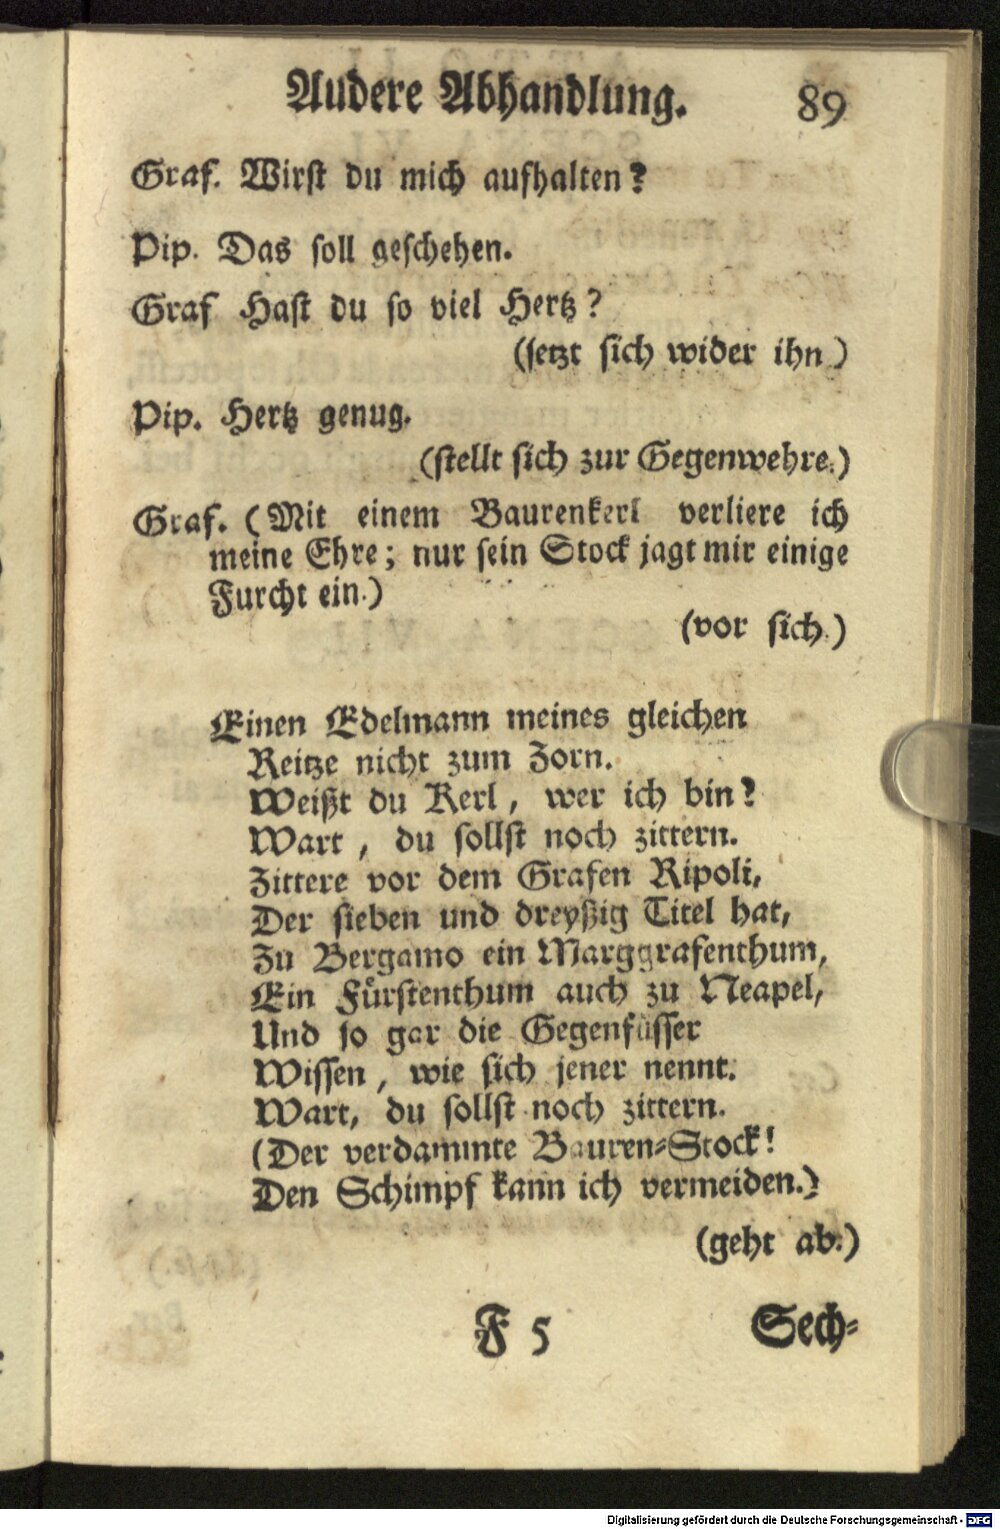 Andere Abhandlung. 89
Graf. Wirst du mich aufhalten?
Pip. Das soll geschehen.
Graf Hast du so viel Hertz?
(setzt sich wider ihn)
Pip. Hertz genug.
(stellt sich zur Gegenwehre.)
Graf. (Mit einem Baurenkerl verliere ich
meine Ehre; nur sein Stock jagt mir einige
Furcht ein.)
(vor sich.)
Einen Edelmann meines gleichen
Reitze nicht zum Zorn.
Weißt du Kerl, wer ich bin?
Wart, du sollst noch zittern.
Zittere vor dem Grafen Ripoli,
Der sieben und dreyßig Titel hat,
Zu Bergamo ein Marggrafenthum,
Ein Fürstenthum auch zu Neapel,
Und so gar die Gegenfüsser
Wissen, wie sich jener nennt.
Wart, du sollst noch zittern.
(Der verdammte Bauren-Stock!
Den Schimpf kann ich vermeiden.)
(geht ab.)
F 5 Sech-
Digitalisierung gefördert durch die Deutsche Forschungsgemeinschaft - DFG